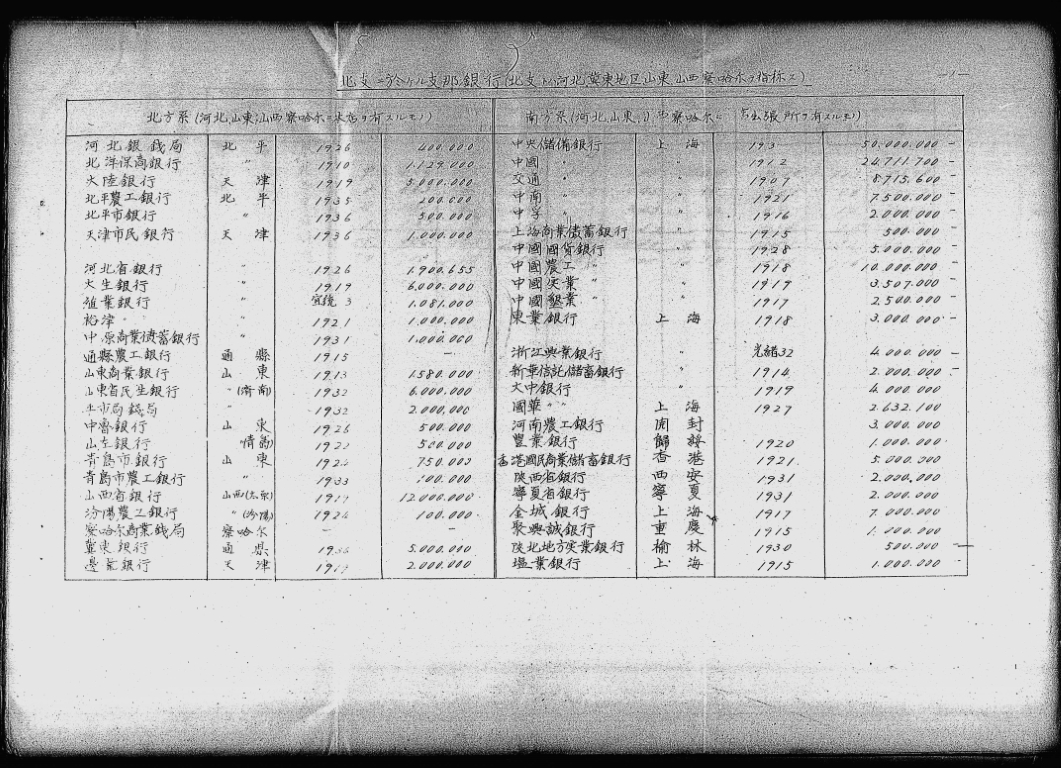 北支ニ於ケル支那銀行(北支トハ河北、冀東地区山東、山西、察哈尓ヲ指称ス) —1—
北方系(河北、山東、山西、察哈尓ニ本店ヲ有スルモノ) 南方系(河北、山東、 察哈尓ニ 出張所ヲ有スルモノ)
河北銀錢局 北平 1926 400.000 中央儲備銀行 上海 193 50.000.000 -
北洋保商銀行 〃 1910 1.129.000 中國 〃 〃 1912 24.711.700 -
大陸銀行 天津 1919 5.000.000 交通 〃 〃 1907 8.715.600 -
北平農工銀行 北平 1935 200.000 中南 〃 〃 1921 7.500.000 -
北平市銀行 〃 1936 500.000 中孚 〃 〃 1916 2.000.000 -
天津市民銀行 天津 1936 1.000.000 上海商業儲蓄銀行 〃 1915 500.000 -
中國國貨銀行 〃 1928 5.000.000 -
河北省銀行 〃 1926 1.900.655 中國農工 〃 〃 1918 10.000.000 -
大生銀行 〃 1919 6.000.000 中國实業 〃 〃 1919 3.507.000 -
殖業銀行 〃 宣统3 1.081.000 中國墾業 〃 〃 1917 2.500.000 -
裕津 〃 〃 1921 1.000.000 東業銀行 上海 1918 3.000.000 -
中原商業儲蓄銀行 〃 1931 1.000.000
通縣農工銀行 通縣 1915 — 浙江興業銀行 〃 光緒32 4.000.000 -
山東商業銀行 山東 1913 1580.000 新華信託儲蓄銀行 〃 1914 2.000.000 -
山東省民生銀行 〃(済南) 1932 6.000.000 大中銀行 〃 1919 4.000.000
平市局錢局 〃 1932 2.000.000 國華 〃 〃 上海 1927 2.632.100
中魯銀行 山東 1926 500.000 河南農工銀行 開封 3.000.000
山左銀行 〃(青島) 1922 500.000 豊業銀行 歸綏 1920 1.000.000
青島市銀行 山東 192 750.000 香港國民商業儲蓄銀行 香港 1921 5.000.000
青島市農工銀行 〃 1933 00.000 陝西省銀行 西安 1931 2.000.000
山西省銀行 山西(太原) 191 12.000.000 寧夏省銀行 寧夏 1931 2.000.000
汾陽農工銀行 〃(汾陽) 1926 100.000 金城銀行 上海 1917 7.000.000
察哈尓商業錢局 察哈尓 — — 聚興誠銀行 重慶 1915 1.000.000
冀東銀行 通県 1936 5.000.000 陝北地方实業銀行 榆林 1930 500.000 —
邊業銀行 天津 191 2.000.000 塩業銀行 上海 1915 1.000.000